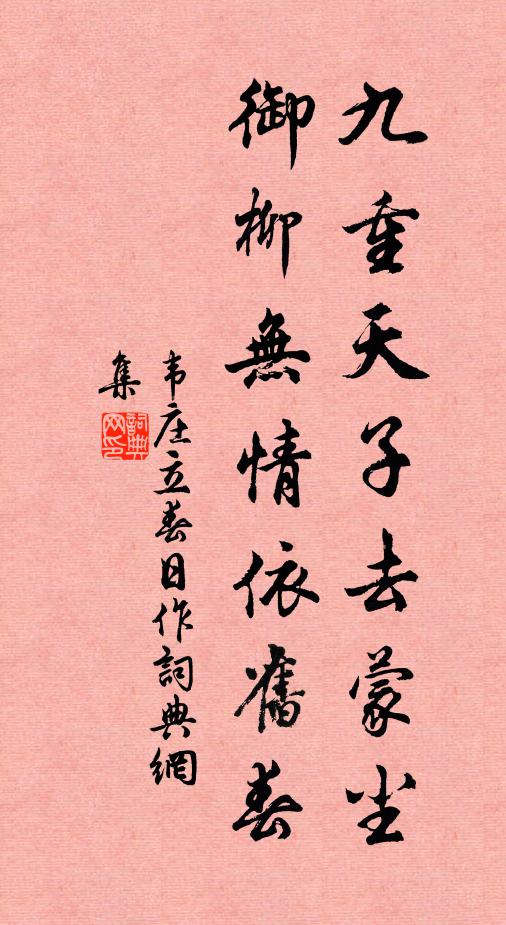 九重天子去蒙尘
御柳無情依舊春
韦庄立春日作詞典網
集
詞典
网印